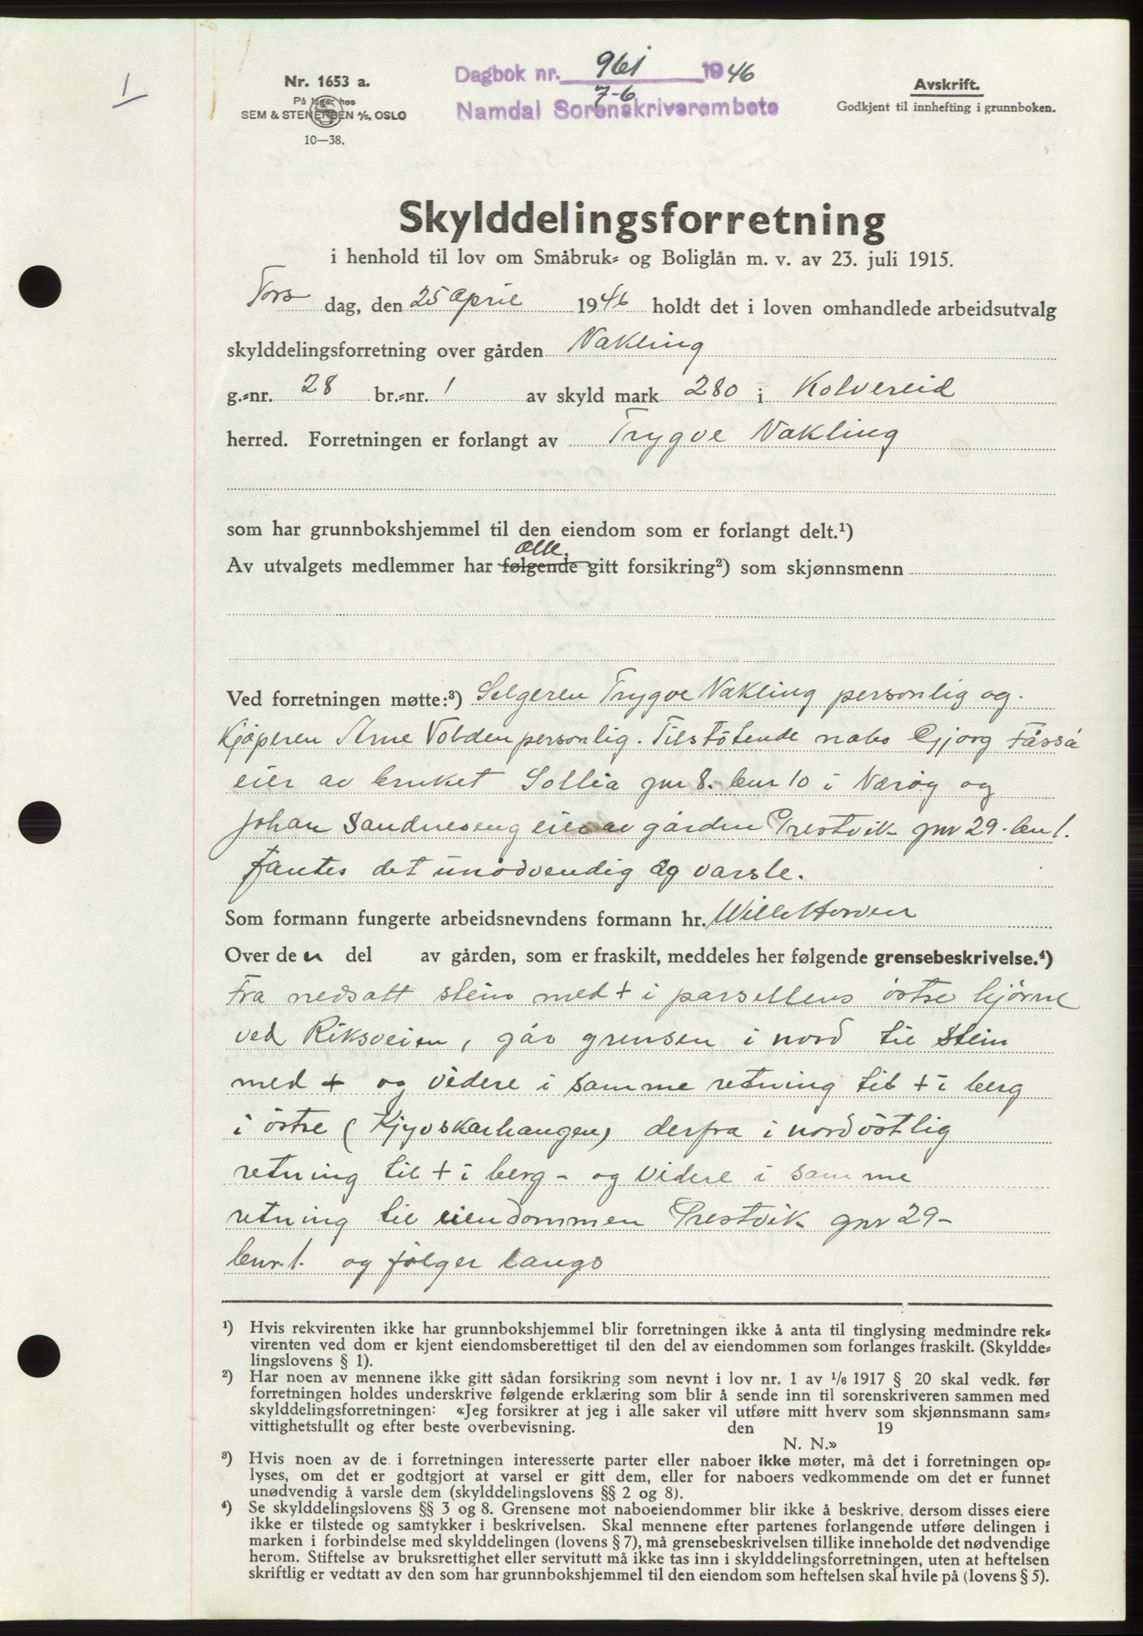 1
Nr. 1653 a.
På lager hos
SEM & STENERSEN A/S, OSLO
10—38.
Dagbok nr. 961 1946
7-6
Namdal Sorenskriverembete
Avskrift.
Godkjent til innhefting i grunnboken.
Skylddelingsforretning
i henhold til lov om Småbruk- og Boliglån m. v. av 23. juli 1915.
Tors dag, den 25 april 1946 holdt det i loven omhandlede arbeidsutvalg
skylddelingsforretning over gården Nakling
g.-nr. 28 br.-nr. 1 av skyld mark 280 i Kolvereid
herred. Forretningen er forlangt av Trygve Nakling
som har grunnbokshjemmel til den eiendom som er forlangt delt.¹)
alle
Av utvalgets medlemmer har følgende gitt forsikring²) som skjønnsmenn
Ved forretningen møtte:³) Selgeren Trygve Nakling personlig og
Kjøperen Arne Volden personlig. Tilstøtende nabo Gjorg Fåsså
eier av bruket Sollia gnr 8. bnr 10 i Nærøy og
Johan Sandneseng eier av gården Prestvik gnr 29. bnr 1.
fantes det unødvendig og varsle.
Som formann fungerte arbeidsnevndens formann hr.
Over den del av gården, som er fraskilt, meddeles her følgende grensebeskrivelse.⁴)
Fra nedsatt stein med + i parsellens østre hjørne
ved Riksveien, går grensen i nord til stein
med + og videre i samme retning til + i berg
i østre (Kjyvskarhaugen) derfra i nordvøstlig
retning til + i berg - og videre i samme
retning til eiendommen Prestvik gnr 29-
bnr. 1. og følger langs
¹) Hvis rekvirenten ikke har grunnbokshjemmel blir forretningen ikke å anta til tinglysing medmindre rek-
virenten ved dom er kjent eiendomsberettiget til den del av eiendommen som forlanges fraskilt. (Skyldde-
lingslovens § 1).
²) Har noen av mennene ikke gitt sådan forsikring som nevnt i lov nr. 1 av 1/6 1917 § 20 skal vedk. før
forretningen holdes underskrive følgende erklæring som blir å sende inn til sorenskriveren sammen med
skylddelingsforretningen: «Jeg forsikrer at jeg i alle saker vil utføre mitt hverv som skjønnsmann sam-
vittighetsfullt og efter beste overbevisning. den 19
N. N.»
³) Hvis noen av de i forretningen interesserte parter eller naboer ikke møter, må det i forretningen op-
lyses, om det er godtgjort at varsel er gitt dem, eller for naboers vedkommende om det er funnet
unødvendig å varsle dem (skylddelingslovens §§ 2 og 8).
⁴) Se skylddelingslovens §§ 3 og 8. Grensene mot naboeiendommer blir ikke å beskrive, dersom disses eiere
ikke er tilstede og samtykker i beskrivelsen. Skal mennene efter partenes forlangende utføre delingen i
marken i forbindelse med skylddelingen (lovens § 7), må grensebeskrivelsen tillike inneholde det nødvendige
herom. Stiftelse av bruksrettighet eller servitutt må ikke tas inn i skylddelingsforretningen, uten at heftelsen
skriftlig er vedtatt av den som har grunnbokshjemmel til den eiendom som heftelsen skal hvile på (lovens § 5).